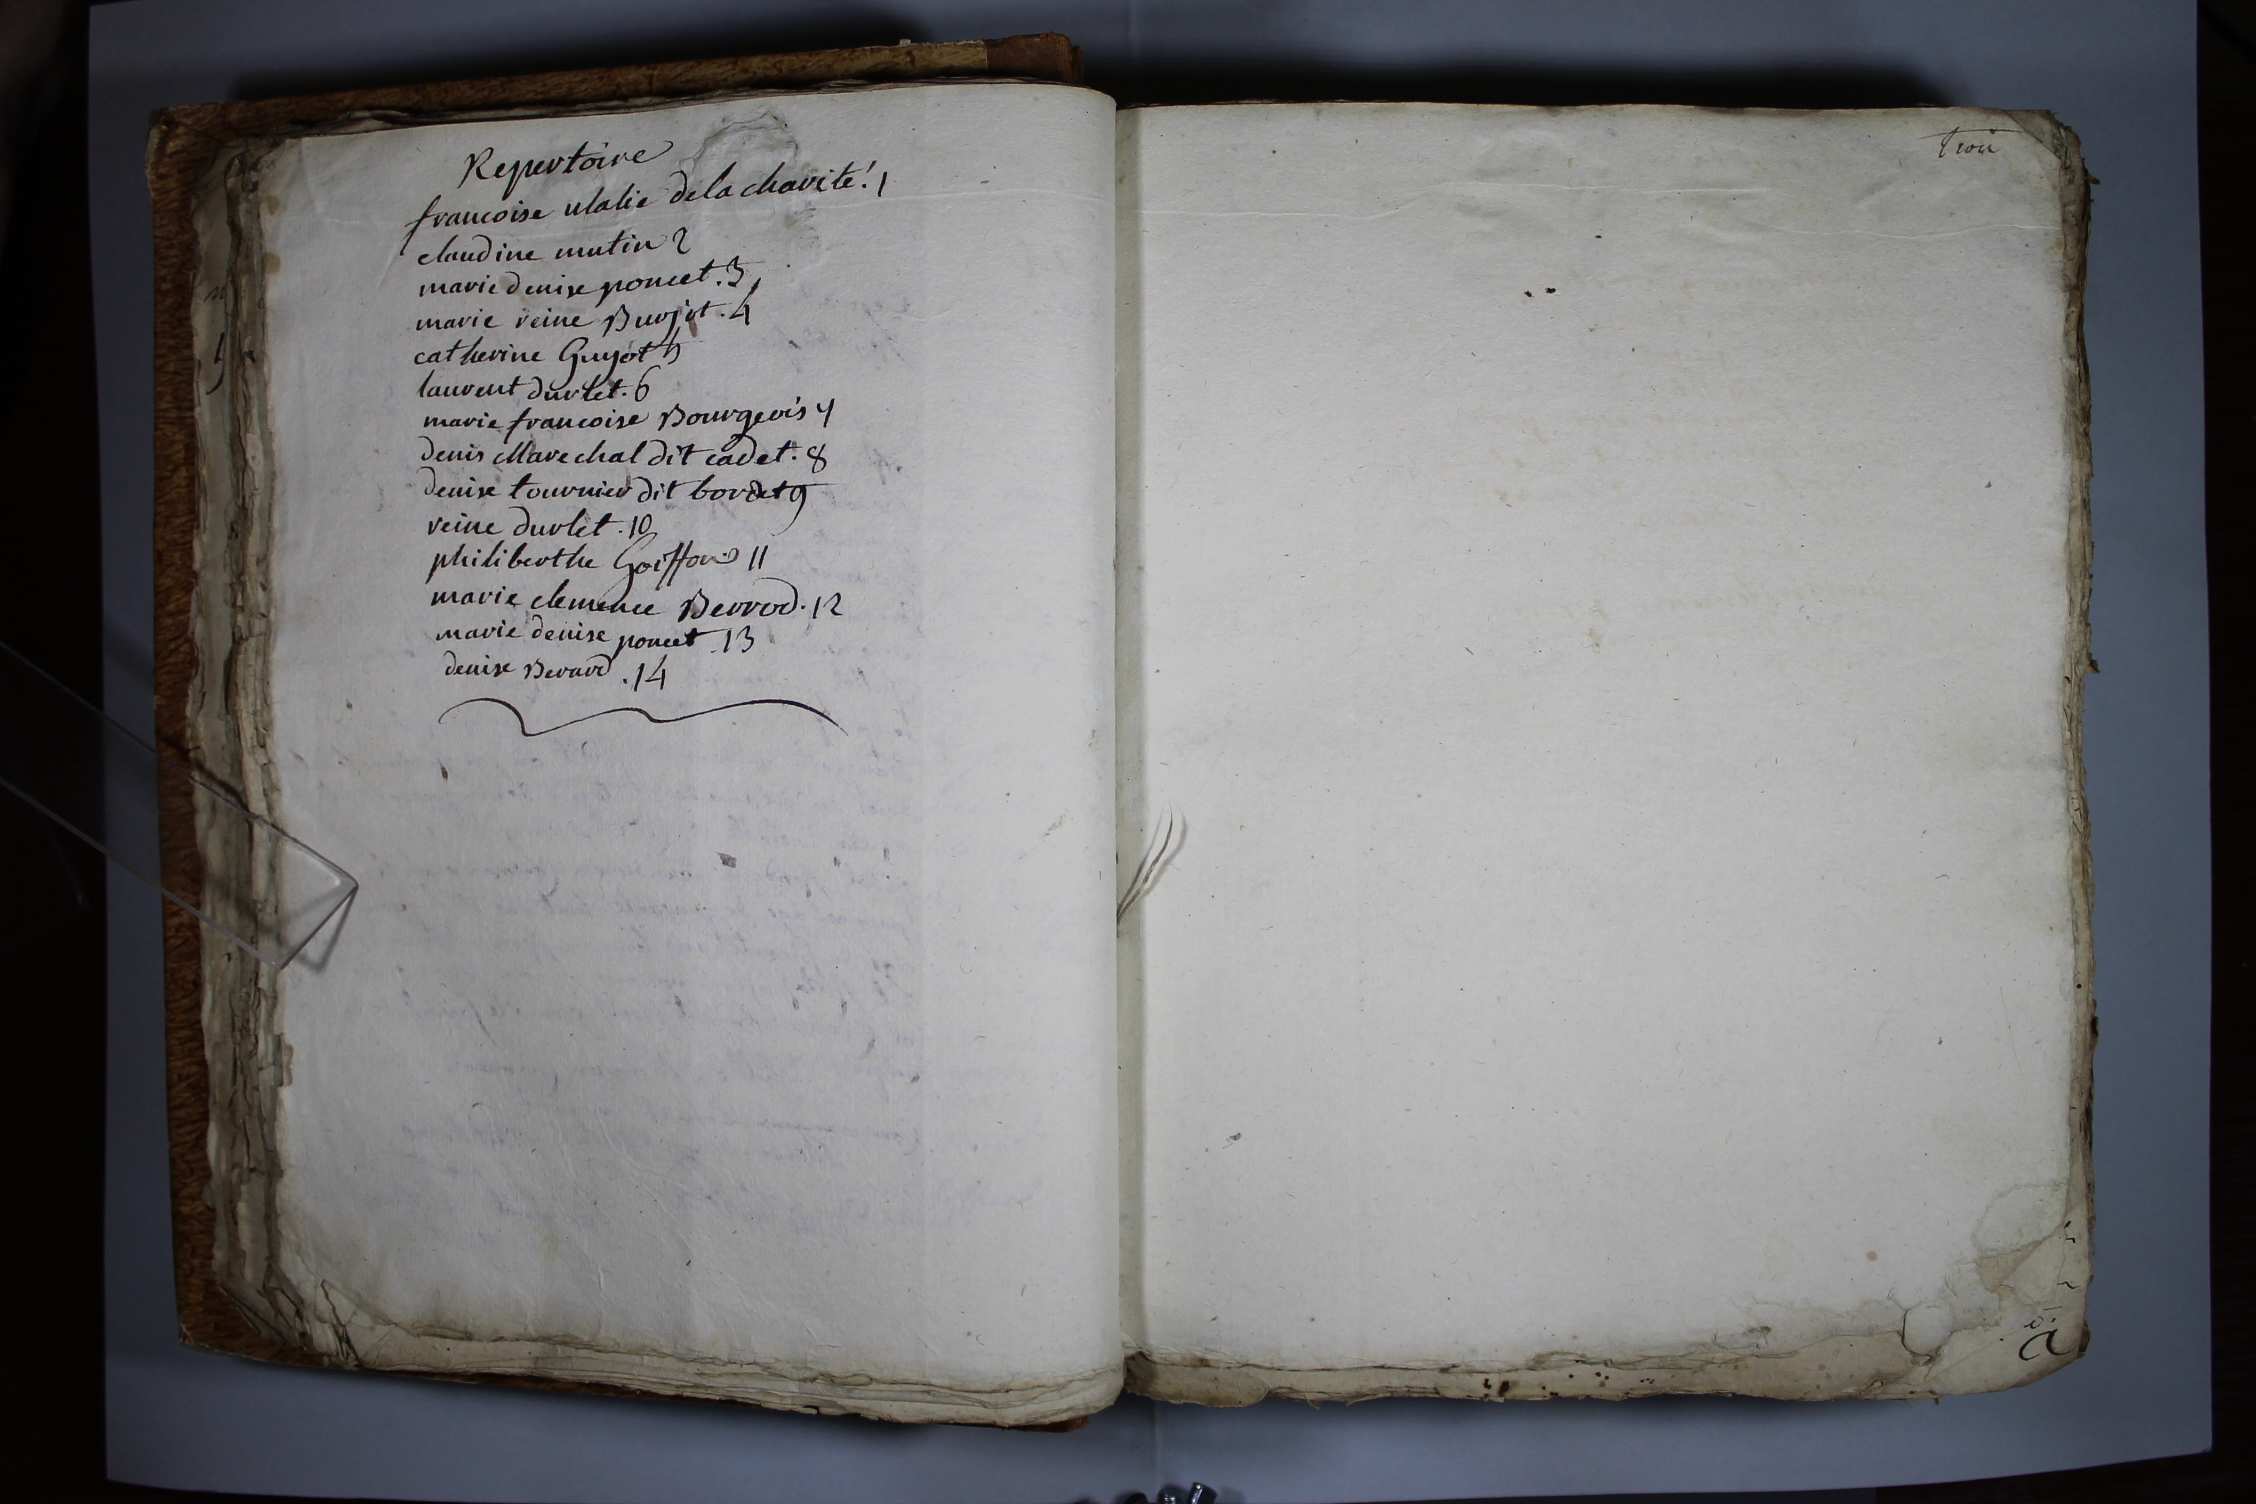 Repertoire
francoise ulalie dela charité. 1
claudine mutin 2
marie denise poncet. 3
marie reine Burjot. 4
catherine Guyot 5
laurent durlet. 6
marie francoise Bourgeois 7
denis Marechal dit cadet. 8
denise tournier dit bordet 9
reine durlet. 10
philiberthe Goiffon 11
marie clemence Berrod. 12
marie denise poncet 13
denise Berard. 14